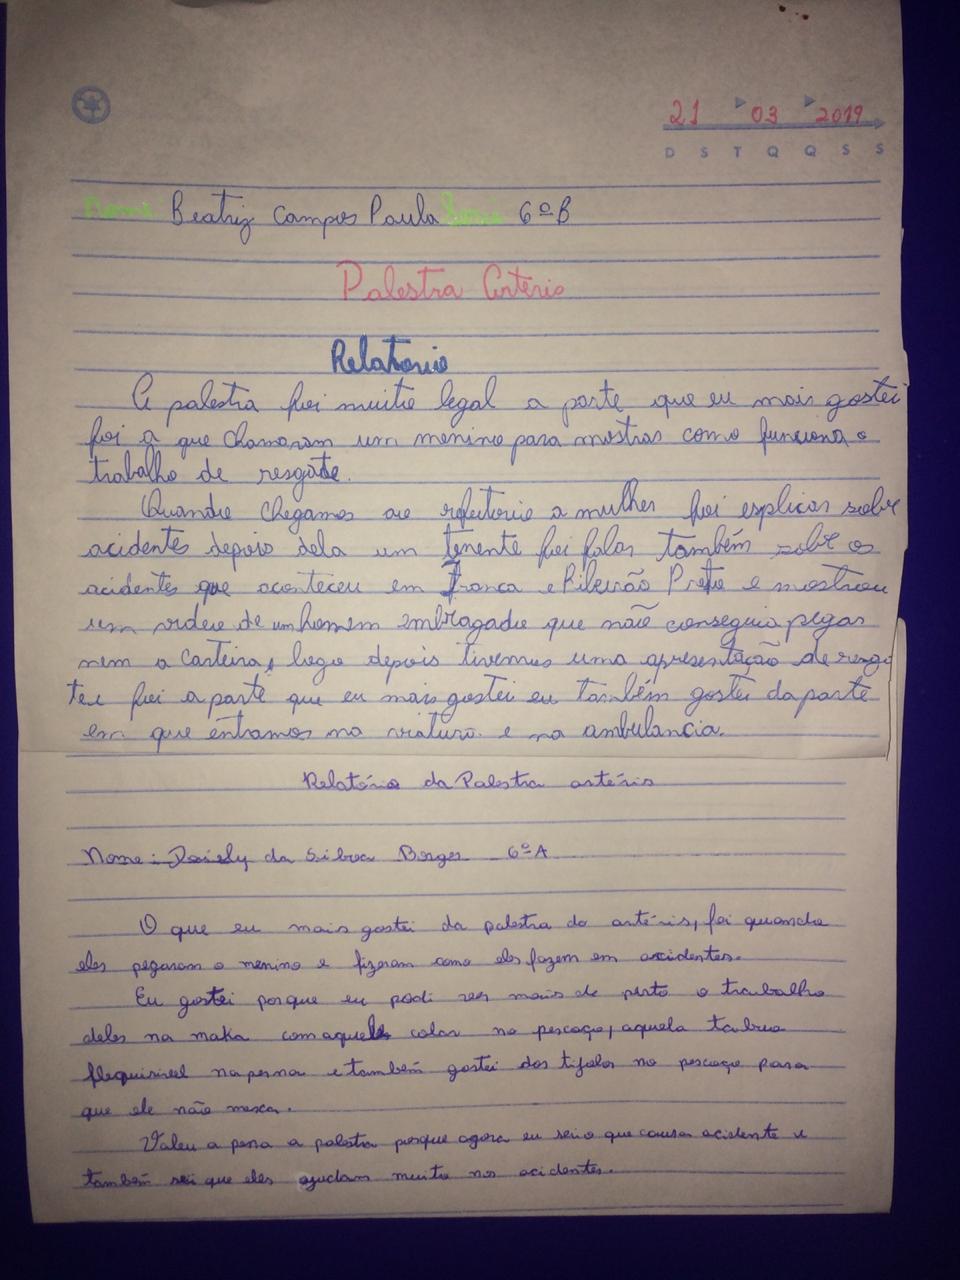 21 03 2019
D S T Q Q S S
Nome: Beatriz Campos Paula Serie 6ºB
Palestra Artéris
Relatorio
A palestra foi muito legal a parte que eu mais gostei
foi a que chamaram um menino para mostras como funciona o
trabalho de resgate.
Quando chegamos ao refeitorio a mulher foi explicar sobre
acidentes depois dela um tenente foi falar também sobre os
acidentes que aconteceu em franca e Ribeirão Preto e mostrou
um video de um homem embragado que não conseguia pegar
nem a carteira, logo depois tivemos uma apresentação de resga
te e foi a parte que eu mais gostei eu também gostei da parte
em que entramos na viatura e na ambulancia.
Relatório da Palestra artéris
Nome: da Silva Borges 6ºA
O que eu mais gostei da palestra da artéris, foi quando
eles pegaram o menino e fizeram como eles fazem em acidentes.
Eu gostei porque eu podi ver mais de perto o trabalho
deles na maka com aquele colar no pescoço, aquela tabua
na perna e também gostei dos tijolos no pescoço para
que ele não mexa.
Valeu a pena a palestra porque agora eu sei o que causa acidente e
também sei que eles ajudam muito nos acidentes.